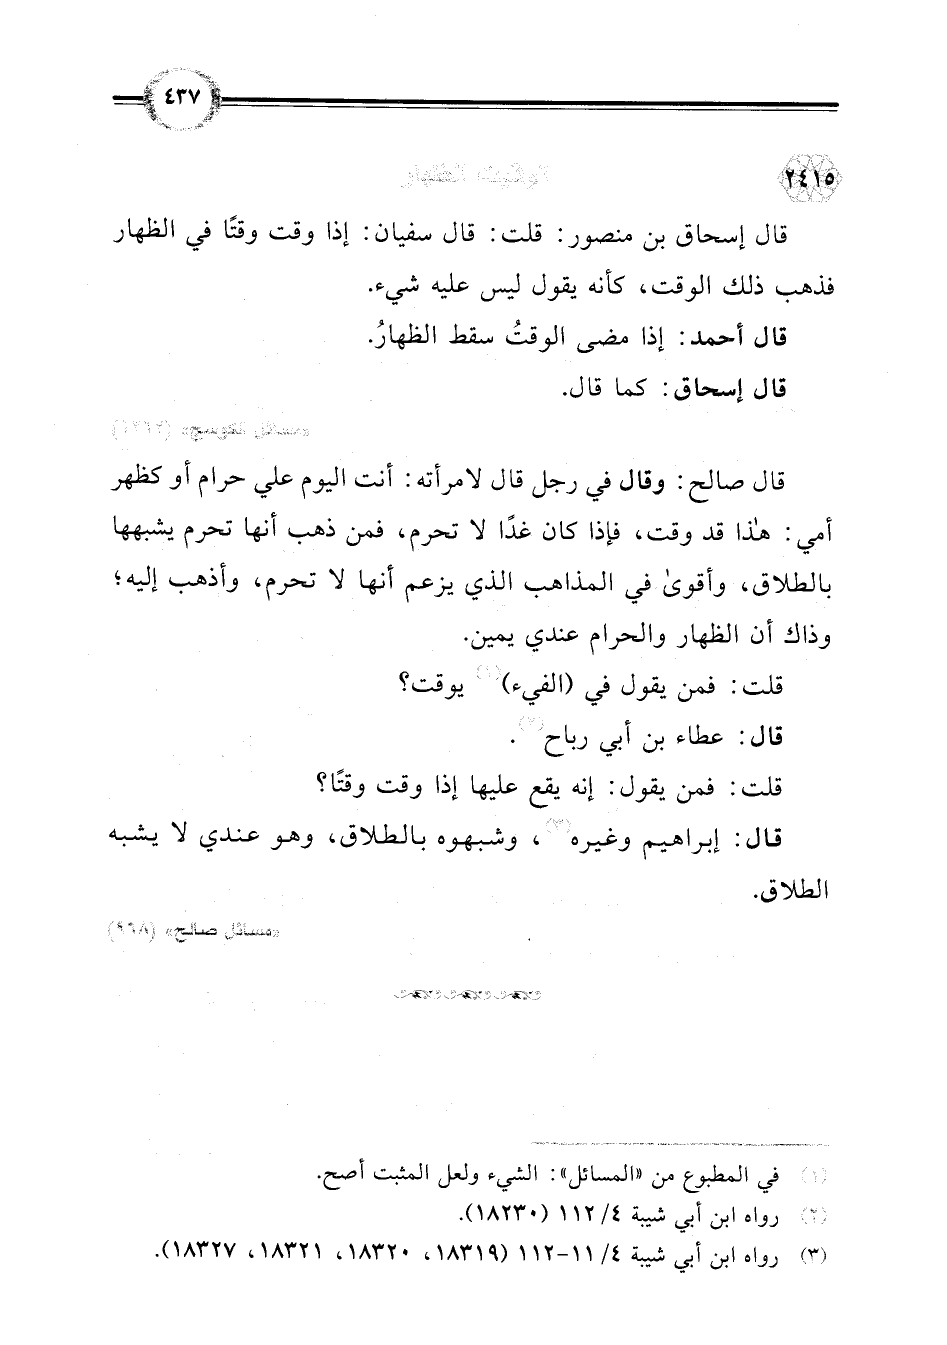 ٤٣٧
٢٤١٥
قال إسحاق بن منصور: قلت: قال سفيان: إذا وقت وقتًا في الظهار
فذهب ذلك الوقت، كأنه يقول ليس عليه شيء.
قال أحمد: إذا مضى الوقتُ سقط الظهارُ.
قال إسحاق: كما قال.
«مسائل الكوسج»
قال صالح: وقال في رجل قال لامرأته: أنت اليوم علي حرام أو كظهر
أمي: هٰذا قد وقت، فإذا كان غدًا لا تحرم، فمن ذهب أنها تحرم يشبهها
بالطلاق، وأقوىٰ في المذاهب الذي يزعم أنها لا تحرم، وأذهب إليه؛
وذاك أن الظهار والحرام عندي يمين.
قلت: فمن يقول في (الفيء)(١) يوقت؟
قال: عطاء بن أبي رباح(٢).
قلت: فمن يقول: إنه يقع عليها إذا وقت وقتًا؟
قال: إبراهيم وغيره(٣)، وشبهوه بالطلاق، وهو عندي لا يشبه
الطلاق.
«مسائل صالح» (٩٦٨)
(١) في المطبوع من «المسائل»: الشيء ولعل المثبت أصح.
(٢) رواه ابن أبي شيبة ٤/ ١١٢ (١٨٢٣٠).
(٣) رواه ابن أبي شيبة ٤/ ١١-١١٢ (١٨٣١٩، ١٨٣٢٠، ١٨٣٢١، ١٨٣٢٧).